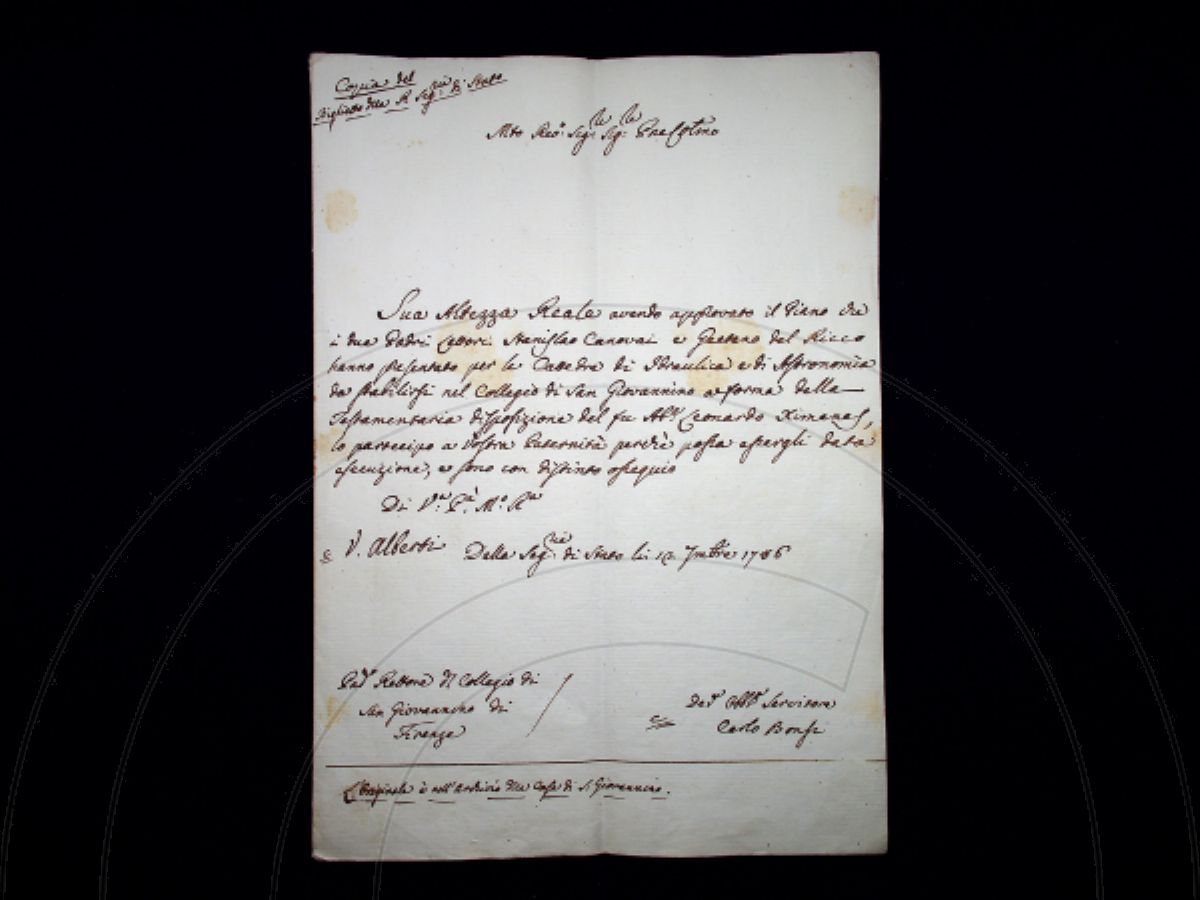 Copia del
Biglietto della R. Seg.ria di Stato
Mto Rev.o Sig.re Sig.re
Sua Altezza Reale avendo approvato il Piano che
i due Padri Lettori Stanislao Canovai e Gaetano del Ricco
hanno presentato per le Cattedre di Idraulica e di Astronomia
da stabilirsi nel Collegio di San Giovannino a forma della
Testamentaria disposizione del fu Ab.e Leonardo Ximenes,
lo partecipo a Vostra Paternità perchè possa essergli data
esecuzione, e sono con distinto ossequio
Di V.a P.a M.o R.a
V. Alberti
Dalla Seg.ria di Stato li 12 7mbre 1786
Pad.e Rettore del Collegio di
San Giovannino di
Firenze
Dev.o Obb.o Servitore
Carlo Bonsi
L'Originale è nell'Archivio della Casa di S. Giovannino.